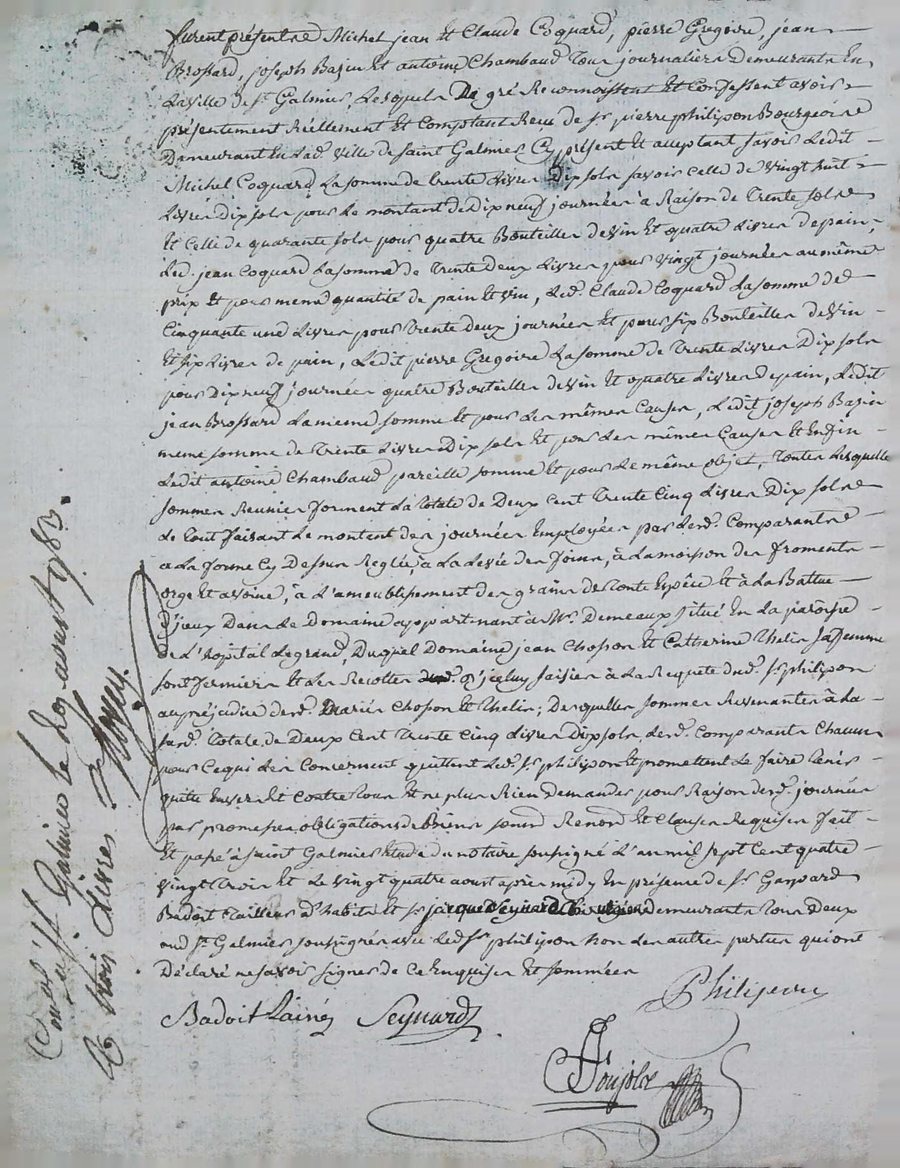 furent présents Michel jean et Claude Coquard, pierre Gregoire, jean
Brossard, joseph Bazin et antoine Chambaud tous journaliers demeurants en
la ville de st. Galmier Lesquels De gré Reconnoissent et Confessent avoir
présentement Réellement et Comptant Reçu de sr. pierre philipon Bourgeois
Demeurant en lad. ville de saint Galmier Cy présent et acceptant savoir Ledit
Michel Coquard La somme de trente Livres Dix sols savoir celle de vingt huit
Livres Dix sols pour Le montant de Dix neuf journées à Raison de trente sols
Et Celle de quarante sols pour quatre Bouteilles de vin Et quatre Livres de pain,
Led. jean Coquard La somme de trente deux Livres pour vingt journées au même
prix et pour meme quantité de pain et vin, Led. Claude Coquard La somme de
Cinquante une Livres pour trente deux journées Et pour six Bouteilles de vin
et six Livres de pain, Ledit pierre Gregoire La somme de trente Livres Dix sols
pour Dix neuf journées quatre Bouteilles de vin Et quatre Livres de pain, Ledit
jean Brossard La meme somme et pour Les mêmes Causes, Ledit joseph Bazin
meme somme de trente Livres Dix sols et pour Les mêmes Causes et Enfin
Ledit antoine Chambaud pareille somme et pour Le même objet, toutes Lesquelles
sommes Reunies forment La totale de Deux Cent trente Cinq Livres Dix sols
Le tout faisant Le montant des journées Employées par Lesd. Comparants
a La forme Cy Dessus Reglée, à La Levée des foins, à La moisson des froments
orge et avoine, à L'ameublissement des grains de toute Espèce et à La Battue
D'iceux Dans Le Domaine appartenant à Mr. Demeaux situé En La paroisse
de L'hopital Le grand, Duquel Domaine jean Chosson et Catherine thelin sa femme
sont fermiers et Les Recoltes d'iceluy saisies à La Requête dud. sr. philipon
au préjudice desd. Mariés Chosson et thelin; Desquelles sommes Revenantes à La
susd. totale de Deux Cent trente Cinq Livres Dix sols, Lesd. Comparants Chacun
pour Ce qui Les Concernent quittent Led. sr. philipon et promettent Le faire tenir
quitte Envers et Contre tous Et ne plus Rien demander pour Raison desd. journées
par promesses obligations de Biens soumd. Renond. Et Clauses Requises fait
Et passé à saint Galmier Etude du notaire soussigné L'an mil sept Cent quatre
vingt trois et Le vingt quatre aoust après midy En présence de sr. Gaspard
Badoit tailleur d'habits et sr. jacques Seynard demeurants tous Deux
aud. st. Galmier soussignés avec Led. sr. philipon non Les autres parties qui ont
Déclaré ne savoir signer de Ce Enquises Et sommées
Philipon
Badoit Lainé Seynard
Poujols
Con.lé à st. Galmier le aoust 1783.
trois livres